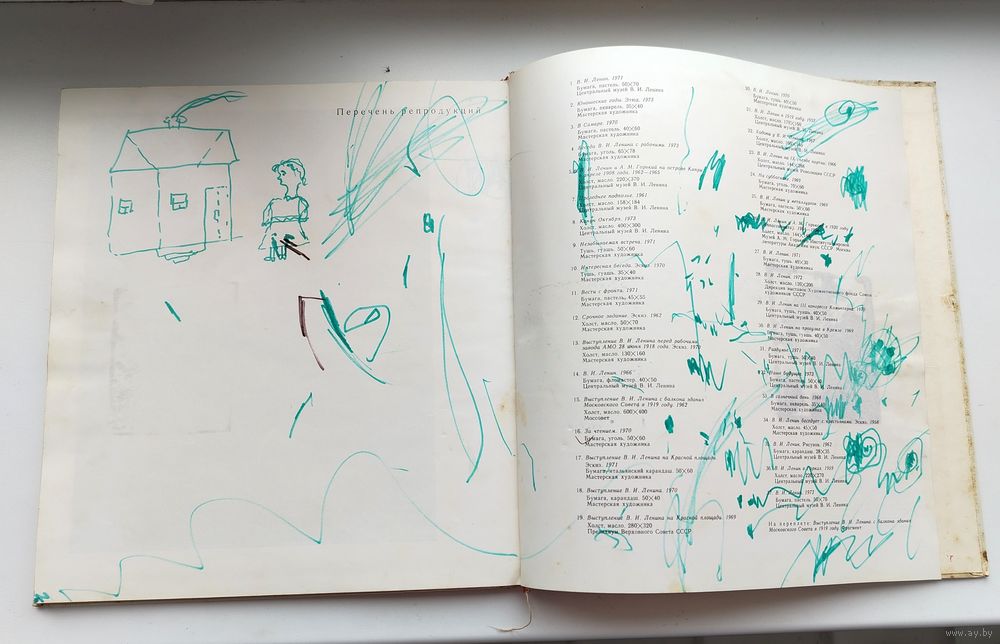 Перечень репродукций
1. В. И. Ленин. 1971
Бумага, пастель. 50×70
Центральный музей В. И. Ленина
2. Юношеские годы. Этюд. 1973
Бумага, акварель. 35×40
Мастерская художника
3. В Самаре. 1970
Бумага, пастель. 40×60
Мастерская художника
4. Беседа В. И. Ленина с рабочими. 1973
Бумага, уголь. 65×78
Мастерская художника
Ленин и А. М. Горький на острове Капри
в апреле 1908 года. 1962—1965
Холст, масло. 220×370
Центральный музей В. И. Ленина
7. Последнее подполье. 1961
Холст, масло. 158×184
Центральный музей В. И. Ленина
8. Канун Октября. 1973
Холст, масло. 400×300
Центральный музей В. И. Ленина
9. Незабываемая встреча. 1971
Тушь, гуашь. 50×60
Мастерская художника
10. Интересная беседа. Эскиз. 1970
Тушь, гуашь. 35×40
Мастерская художника
11. Вести с фронта. 1971
Бумага, пастель. 45×55
Мастерская художника
12. Срочное задание. Эскиз. 1962
Холст, масло. 50×70
Мастерская художника
13. Выступление В. И. Ленина перед рабочими
завода АМО 28 июня 1918 года. Эскиз. 1970
Холст, масло. 130×160
Мастерская художника
14. В. И. Ленин. 1966
Бумага, фломастер. 40×50
Центральный музей В. И. Ленина
15. Выступление В. И. Ленина с балкона здания
Московского Совета в 1919 году. 1962
Холст, масло. 600×400
Моссовет
16. За чтением. 1970
Бумага, уголь. 50×60
Мастерская художника
17. Выступление В. И. Ленина на Красной площади.
Эскиз. 1971
Бумага, итальянский карандаш. 50×60
Мастерская художника
18. Выступление В. И. Ленина. 1970
Бумага, карандаш. 50×40
Мастерская художника
19. Выступление В. И. Ленина на Красной площади. 1969
Холст, масло. 280×320
Президиум Верховного Совета СССР
20. В. И. Ленин. 1970
Мастерская художника
21. В. И. Ленин в 1919 году.
Холст, масло.
Центральный музей В. И. Ленина
22. Ходоки у В. И. Ленина.
Холст, масло.
Центральный музей В. И. Ленина
Холст, масло.
Центральный музей Революции СССР
24. На субботнике. 1969
Бумага, уголь.
Центральный музей В. И. Ленина
25. В. И. Ленин у металлургов. 1969
Бумага, пастель. 50×60
Мастерская художника
в 1920 году
Холст, масло.
Музей А. М. Горького Института мировой
литературы Академии наук СССР. Москва
27. В. И. Ленин. 1971
Бумага, тушь.
Мастерская художника
28. В. И. Ленин. 1972
Холст, масло. 120×200
Дирекция выставок Художественного фонда Союза
художников СССР
29. В. И. Ленин на III конгрессе Коминтерна. 1970
Бумага, тушь, гуашь. 40×50
Центральный музей В. И. Ленина
30. В. И. Ленин на прогулке в Кремле. 1969
Бумага, тушь, гуашь. 40×50
Центральный музей В. И. Ленина
31. Раздумье. 1971
Бумага, тушь.
Центральный музей В. И. Ленина
будущее. 1972
Бумага, пастель.
Мастерская художника
33. В солнечный день. 1968
Бумага, акварель. 35×40
Мастерская художника
34. В. И. Ленин беседует с крестьянами. Эскиз. 1968
Холст, масло. 45×50
Мастерская художника
В. И. Ленин. Рисунок. 1962
Бумага, карандаш. 28×35
Центральный музей В. И. Ленина
36. В. И. Ленин в Горках. 1969
Холст, масло.
Центральный музей В. И. Ленина
В. И. Ленин. 1972
Бумага, пастель. 50×70
Центральный музей В. И. Ленина
На переплете: Выступление В. И. Ленина с балкона здания
Московского Совета в 1919 году. Фрагмент.
www.ay.by